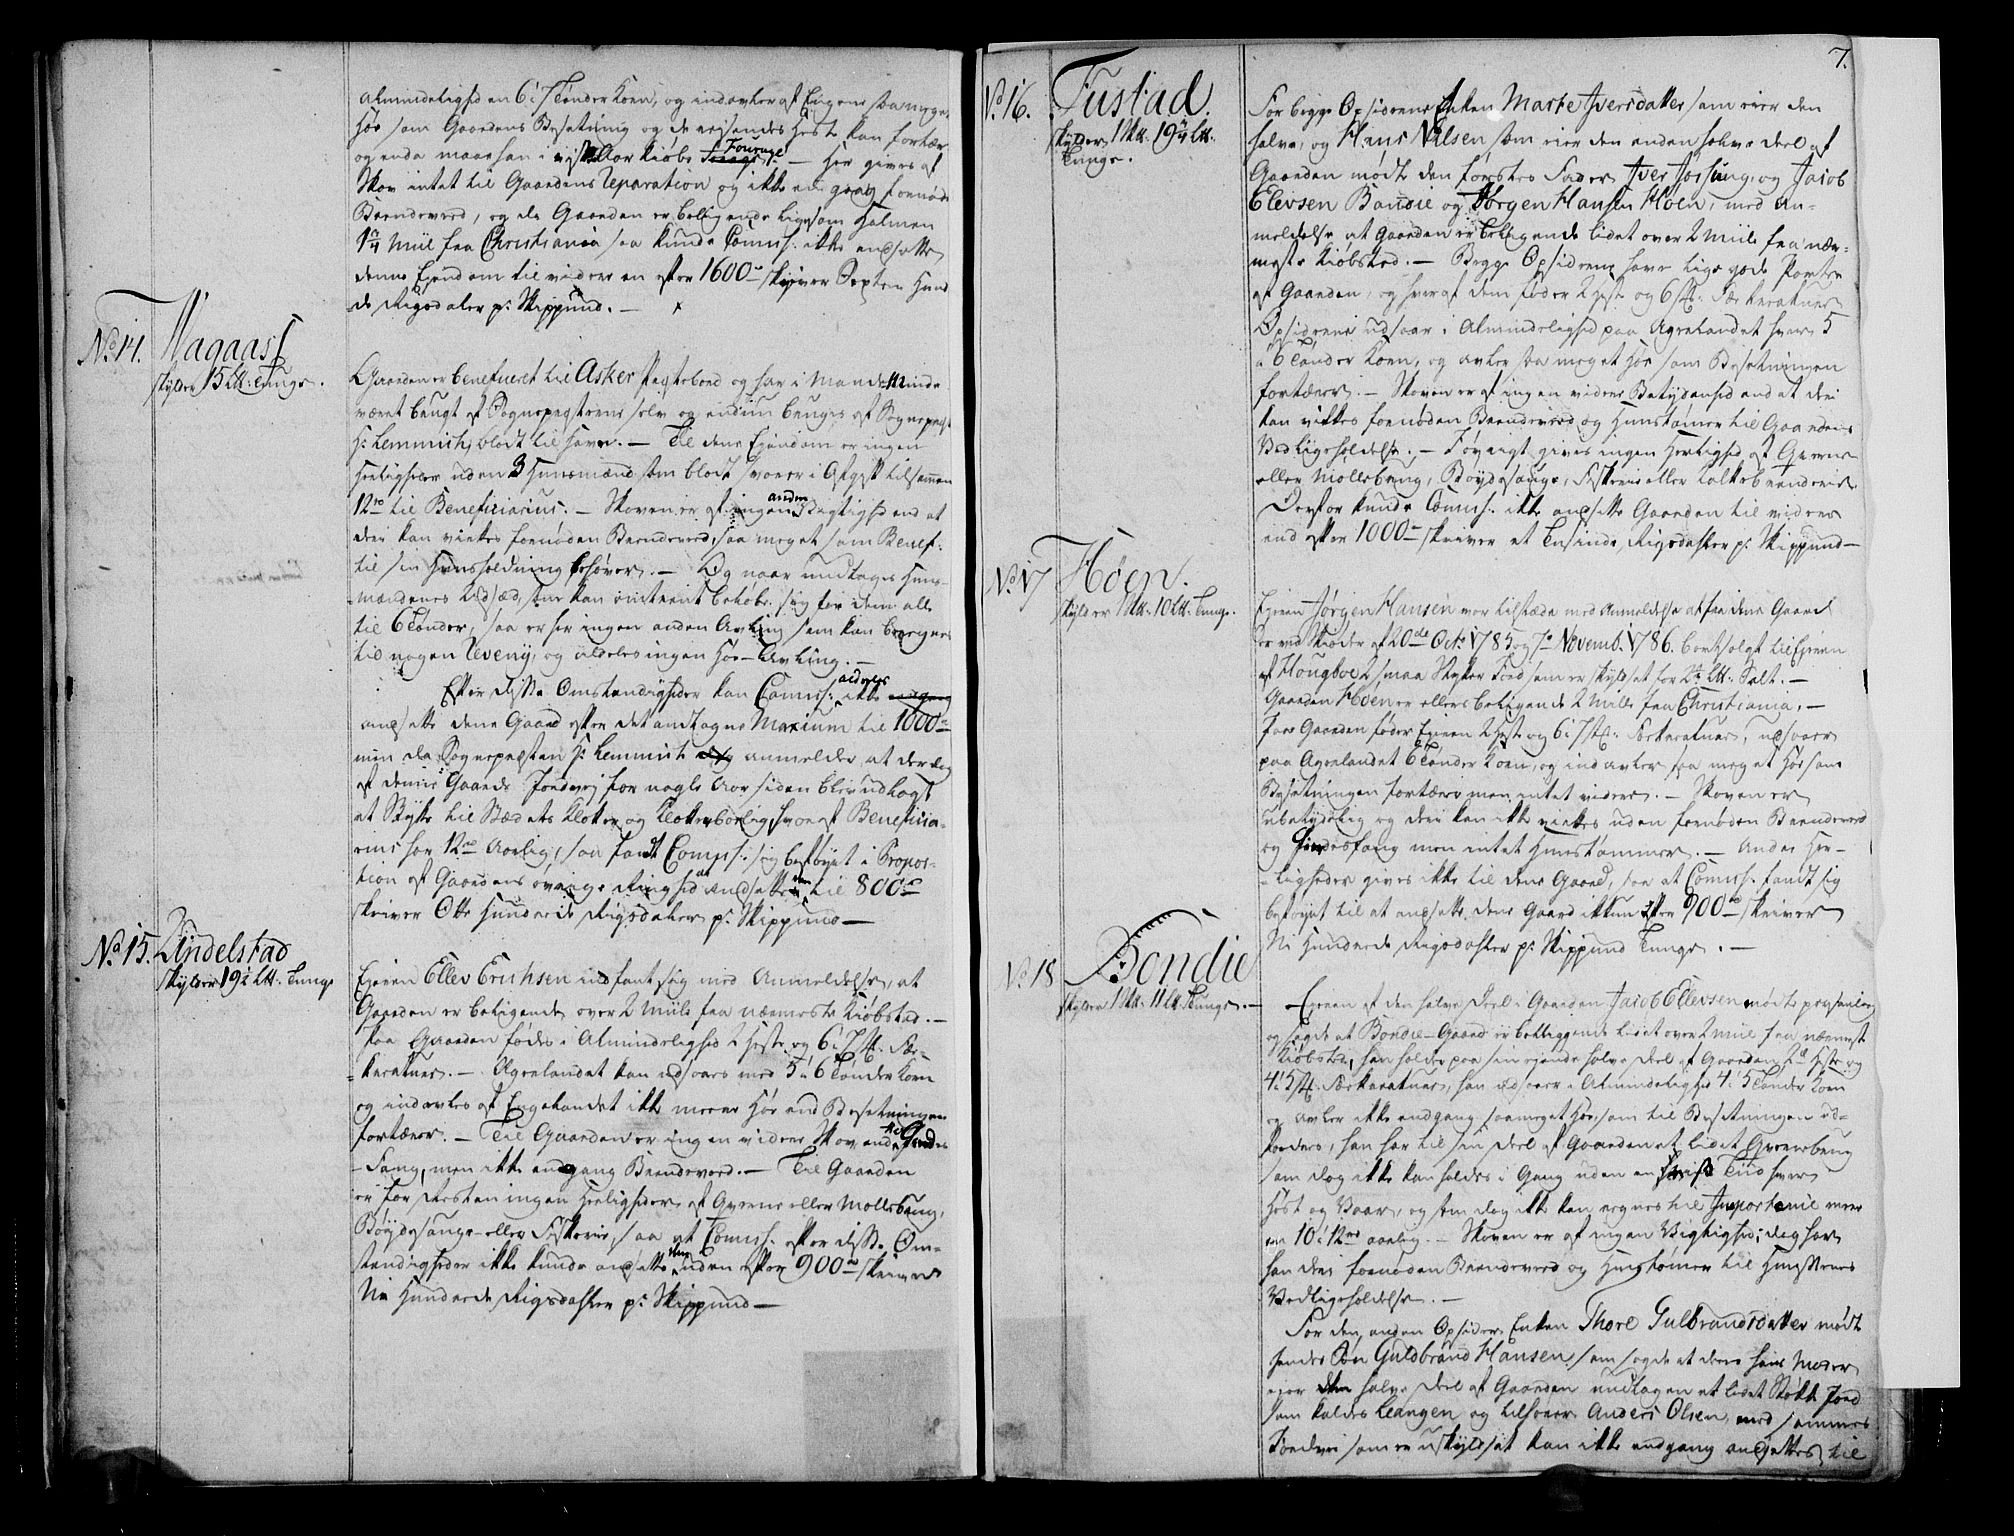 almindelighed en 6 á 7 Tønder Korn, og indavler af Engene saa meget
Høe som Gaardens Besetning og de reisendes Heste kan fortære
og enda maae han i visse Aar kiøbe Fourage. — Her gives af
Skov intet til Gaardens Reparation og ikke en gang fornøden
Brendeved, og da Gaarden er beligende ligesom Halmen
1 1/4 Miil fra Christiania saa kunde Commiss: ikke ansette
denne Eyendom til videre en efter 1600 rd skriver Sexten Hund
de Rigsdaler pr Skippund. —
No 14. Wagaass
skylder 15 Lb: Tunge.
Gaarden er beneficeret til Asker Præstebord og har i Mands Minde
været brugt af Sognepræstene selv og endnu bruges af Sognepræst
Hr Lemmich blodt til Havn. — Til dene Eyendom er ingen
Herligheder uden 3 Huusmænd som blodt svarer i Afgift tilsammen
12 rd til Beneficiarius. — Skoven er af ingen anden Vigtighed end at
der kan virkes fornøden Brendeved, saa meget som Benef:
til sin Huusholdning behøver. — Og naar undtages Huus-
mændenes Udsæd, som kan omtrent beløbe sig for dem alle
til 6 Tønder, saa er her ingen anden Avling som kan beregnes
til nogen Reveny, og aldeles ingen Høe-Avling. —
Efter disse Omstendigheder kan Commiss: ikke aldeles
ansette dene Gaard efter det antagne Maxium til 1000 rd
men da Sognepræsten Hr Lemmich anmelder at der
af denne Gaards Jordvej for nogle Aar siden blev udlagt
et Stykke til Stædets Klokker og Klokkerbolig, hvoraf Beneficia-
rius har 12 rd Aarlig, saa fandt Commiss: sig beføyet i Propor-
tion af Gaardens øvrige Ringhed at ansette den til 800 rd
skriver Otte Hundrede Rigsdaler pr Skippund —
No 15. Undelstad
skylder 19 1/2 Lb: Tunge
Eyeren Ellev Erichsen indfant sig med Anmeldelse, at
Gaarden er beligende over 2 Miile fra nærmeste Kiøbstad. —
Paa Gaarden fødes i Almindelighed 2 Heste og 6 á 7 St: Fæ-
kreature. — Agerlandet kan udsaaes med 5 á 6 Tønder Korn
og indavles af Engelandet ikke meere Høe end Besetningen
fortærer. — Til Gaarden er ingen videre Skov end til Gierde-
Fang, men ikke engang Brendeved. — Til Gaarden
er for Resten ingen Herligheder af Qverne eller Møllebrug,
Bøydesauge eller Fiskerie, saa at Commiss: efter disse Om-
stendigheder ikke kunde ansette den uden efter 900 rd skriver
Ni Hundrede Rigsdahler pr Skippund —
7.
No 16. Fustad.
skylder 1 Skl: 19 1/4 Lb:
Tunge.
For begge Opsidderne Enken Marte Iversdatter som eier den
halve, og Hans Nilsen som eier den anden halve deel af
Gaarden mødte den førstes Fader Iver Jossung, og Jacob
Elevsen Bondie og Jørgen Hansen Høen, med An-
meldelse at Gaarden er beligende lidet over 2 Miile fra nær-
meste Kiøbstad. — Begge Opsidderne have lige gode Parter
af Gaarden, og hver af dem føder 2 Heste og 6 St: Fæekreature
Opsidderne udsaar i Almindelighed paa Agerlandet hver 5
á 6 Tønder Korn, og avler saa meget Høe som Besetningen
fortærer. — Skoven er af ingen videre Betydenhed end at der
kan virkes fornøden Brendeved og Huustømer til Gaardens
Vedligeholdelse. — I øvrigt gives ingen Herlighed af Qverne
eller Møllebrug, Bøydesauge, Fiskerie eller Kalkbrenderie
Derfor kunde Commiss: ikke ansette Gaarden til videre
end efter 1000 rd skriver et Tusinde Rigsdahler pr Skippund —
No 17 Høen.
skylder 1 Skl: 10 Lb: Tunge.
Eyeren Jørgen Hansen var tilstæde med Anmeldelse at fra dene Gaard
er ved Skiøder af 20de Octr 1785 og 7de Novemb: 1786. bortsolgt til Eyeren
af Hougboe 2 smaa Stykker Jord som er skyldsat for 2 1/2 Lb: Salt. —
Gaarden Høen er ellers beligende 2 Mile fra Christiania, —
Paa Gaarden føder Eyeren 2 Heste og 6 á 7 St: Fæekreature, udsaaer
paa Agerlandet 6 Tønder Korn, og indavler saa meget Høe som
Besetningen fortærer men intet videre. — Skoven er
ubetydelig og der kan ikke virkes uden fornøden Brendeved
og Gierdesfang men intet Huustømmer. — Andre Her-
ligheder gives ikke til dene Gaard, saa at Commiss: fandt sig
beføyet til at ansette dene Gaard ikkun efter 900 rd skriver
Ni Hundrede Rigsdahler pr Skippund Tunge. —
No 18 Bondie
skylder 1 Skl: 11 Lb Tunge. —
Eyeren af den halve Deel i Gaarden Jacob Ellevsen mødte personlig
og sagde at Bondie-Gaard er beliggende lidet over 2 Miil fra nærmeste
Kiøbsted, han holder paa sin ejende halve Deel af Gaarden 2de Heste og
4 á 5 St: Fæekreature, han udsaaer i Almindelighed 4 á 5 Tønder Korn
og avler ikke endgang saameget Høe, som til Besetningen ud-
fordres, han har til sin Deel af Gaarden et lidet Qvernebrug
som dog ikke kan holdes i Gang uden en Tiid hver
Høst og Vaar, og som dog ikke kan regnes til Importance mere
en 10 á 12 rd aarlig. — Skoven er af ingen Vigtighed; dog har
han deri fornøden Brendeved og Huustømer til Huusenes
Vedligeholdelse. —
For den anden Opsidder Enken Thore Gulbrandsdatter mødte
hendes Søn Guldbrand Hansen, som sagde at dene hans Moder
eier den halve Deel af Gaarden undtagen et lidet Støkke Jord
som kaldes Leangen og tilhører Anders Olsen, med sammes
Jordvei som er uskyldsat kan ikke endgang ansettes til